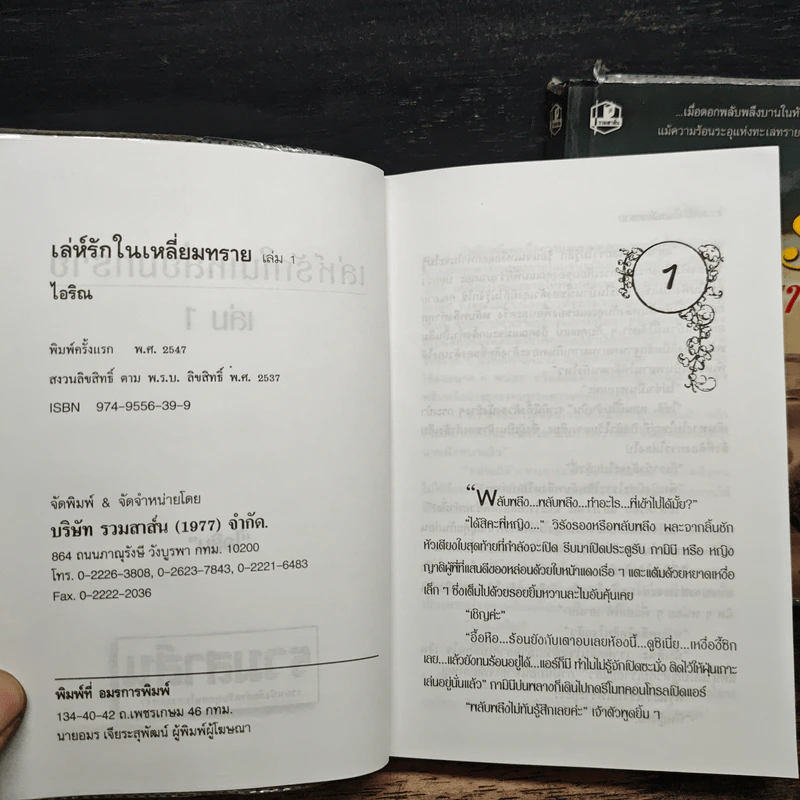 เล่ห์รักในเหลี่ยมทราย เล่ม 1
ไอริณ
พิมพ์ครั้งแรก พ.ศ. 2547
สงวนลิขสิทธิ์ ตาม พ.ร.บ. ลิขสิทธิ์ พ.ศ. 2537
ISBN 974-9556-39-9
จัดพิมพ์ & จัดจำหน่ายโดย
บริษัท รวมสาส์น (1977) จำกัด.
864 ถนนภาณุรังษี วังบูรพา กทม. 10200
โทร. 0-2226-3808, 0-2623-7843, 0-2221-6483
Fax. 0-2222-2036
พิมพ์ที่ อมรการพิมพ์
134-40-42 ถ.เพชรเกษม 46 กทม.
นายอมร เจียระสุพัฒน์ ผู้พิมพ์ผู้โฆษณา
1
“พลับพลึง...พลับพลึง...ทำอะไร...พี่เข้าไปได้มั้ย?”
“ได้สิคะพี่หญิง...” วิรังรองหรือพลับพลึง ผละจากลิ้นชัก
หัวเตียงใบสุดท้ายที่กำลังจะเปิด รีบมาเปิดประตูรับ กามินี หรือ หญิง
ญาติผู้พี่ที่แสนดีของหล่อนด้วยใบหน้าแดงเรื่อ ๆ และแต้มด้วยหยาดเหงื่อ
เล็ก ๆ ซึ่งเต็มไปด้วยรอยยิ้มหวานละไมอันคุ้นเคย
“เชิญค่ะ”
“อื้อหือ...ร้อนยังกับเตาอบเลยห้องนี้...ดูซิเนี่ย...เหงื่อซิซิก
เลย...แล้วยังทนร้อนอยู่ได้...แอร์ก็มี ทำไมไม่รู้จักเปิดซะมั่ง ติดไว้ให้ฝุ่นเกาะ
เล่นอยู่นั่นแล้ว” กามินีบ่นพลางก็เดินไปกดรีโมทคอนโทรลเปิดแอร์
“พลับพลึงไม่ทันรู้สึกเลยค่ะ” เจ้าตัวพูดยิ้ม ๆ
...เมื่อดอกพลับพลึงบานใน
แม้ความร้อนระอุแห่งทะเลทราย
รวมสาส์น